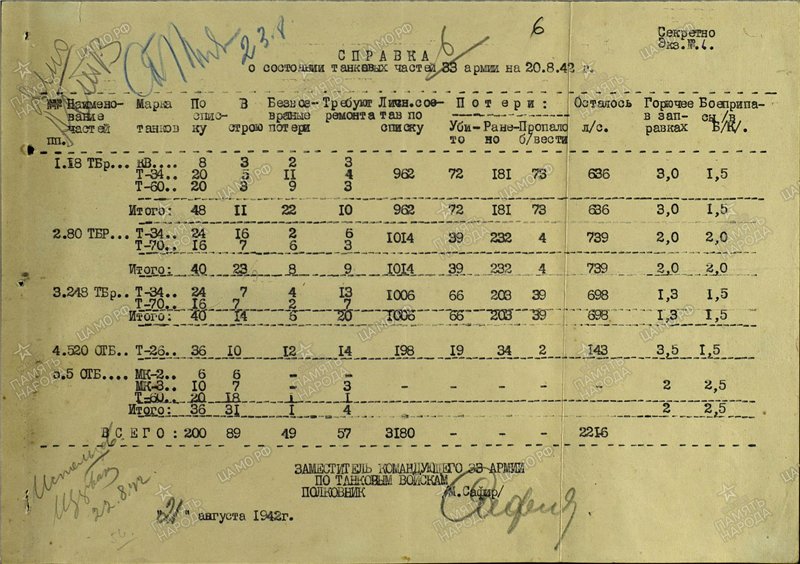 6
Секретно
Экз.№.1.
23.8
СПРАВКА
о состоянии танковых частей 33 армии на 20.8.42 г.
№№ Наимено- Марка По В Безвоз- Требуют Лич.сое- Потери: Осталось Горючее Боеприпа-
вание спис- вратные ремонта тав по л/с. в зап- сы /в
частей танков ку строю потери списку Уби- Ране- Пропало равках Б/К/.
пп. то но б/вести
1.18 ТБр... КВ.... 8 3 2 3
Т-34.. 20 5 11 4 962 72 181 73 636 3,0 1,5
Т-60.. 20 3 9 3
Итого: 48 11 22 10 962 72 181 73 636 3,0 1,5
2.80 ТБР... Т-34.. 24 16 2 6 1014 39 232 4 739 2,0 2,0
Т-70.. 16 7 6 3
Итого: 40 23 8 9 1014 39 232 4 739 2,0 2,0
3.248 ТБр.. Т-34.. 24 7 4 13 1006 66 203 39 698 1,3 1,5
Т-70.. 16 7 2 7
Итого: 40 14 6 20 1006 66 203 39 698 1,3 1,5
4.520 ОТБ.. Т-26.. 36 10 12 14 198 19 34 2 143 3,5 1,5
5.5 ОТБ.... МК-2.. 6 6 - -
МК-3.. 10 7 - 3 - - - - - 2 2,5
Т-60.. 20 18 1 1
Итого: 36 31 1 4 2 2,5
ВСЕГО: 200 89 49 57 3180 - - - 2216
ЗАМЕСТИТЕЛЬ КОМАНДУЮЩЕГО 33 АРМИИ
ПО ТАНКОВЫМ ВОЙСКАМ
ПОЛКОВНИК /М.Сафир/
"21" августа 1942г.
22.8.42
ПАМЯТЬ НАРОДА
ЦАМО.РФ